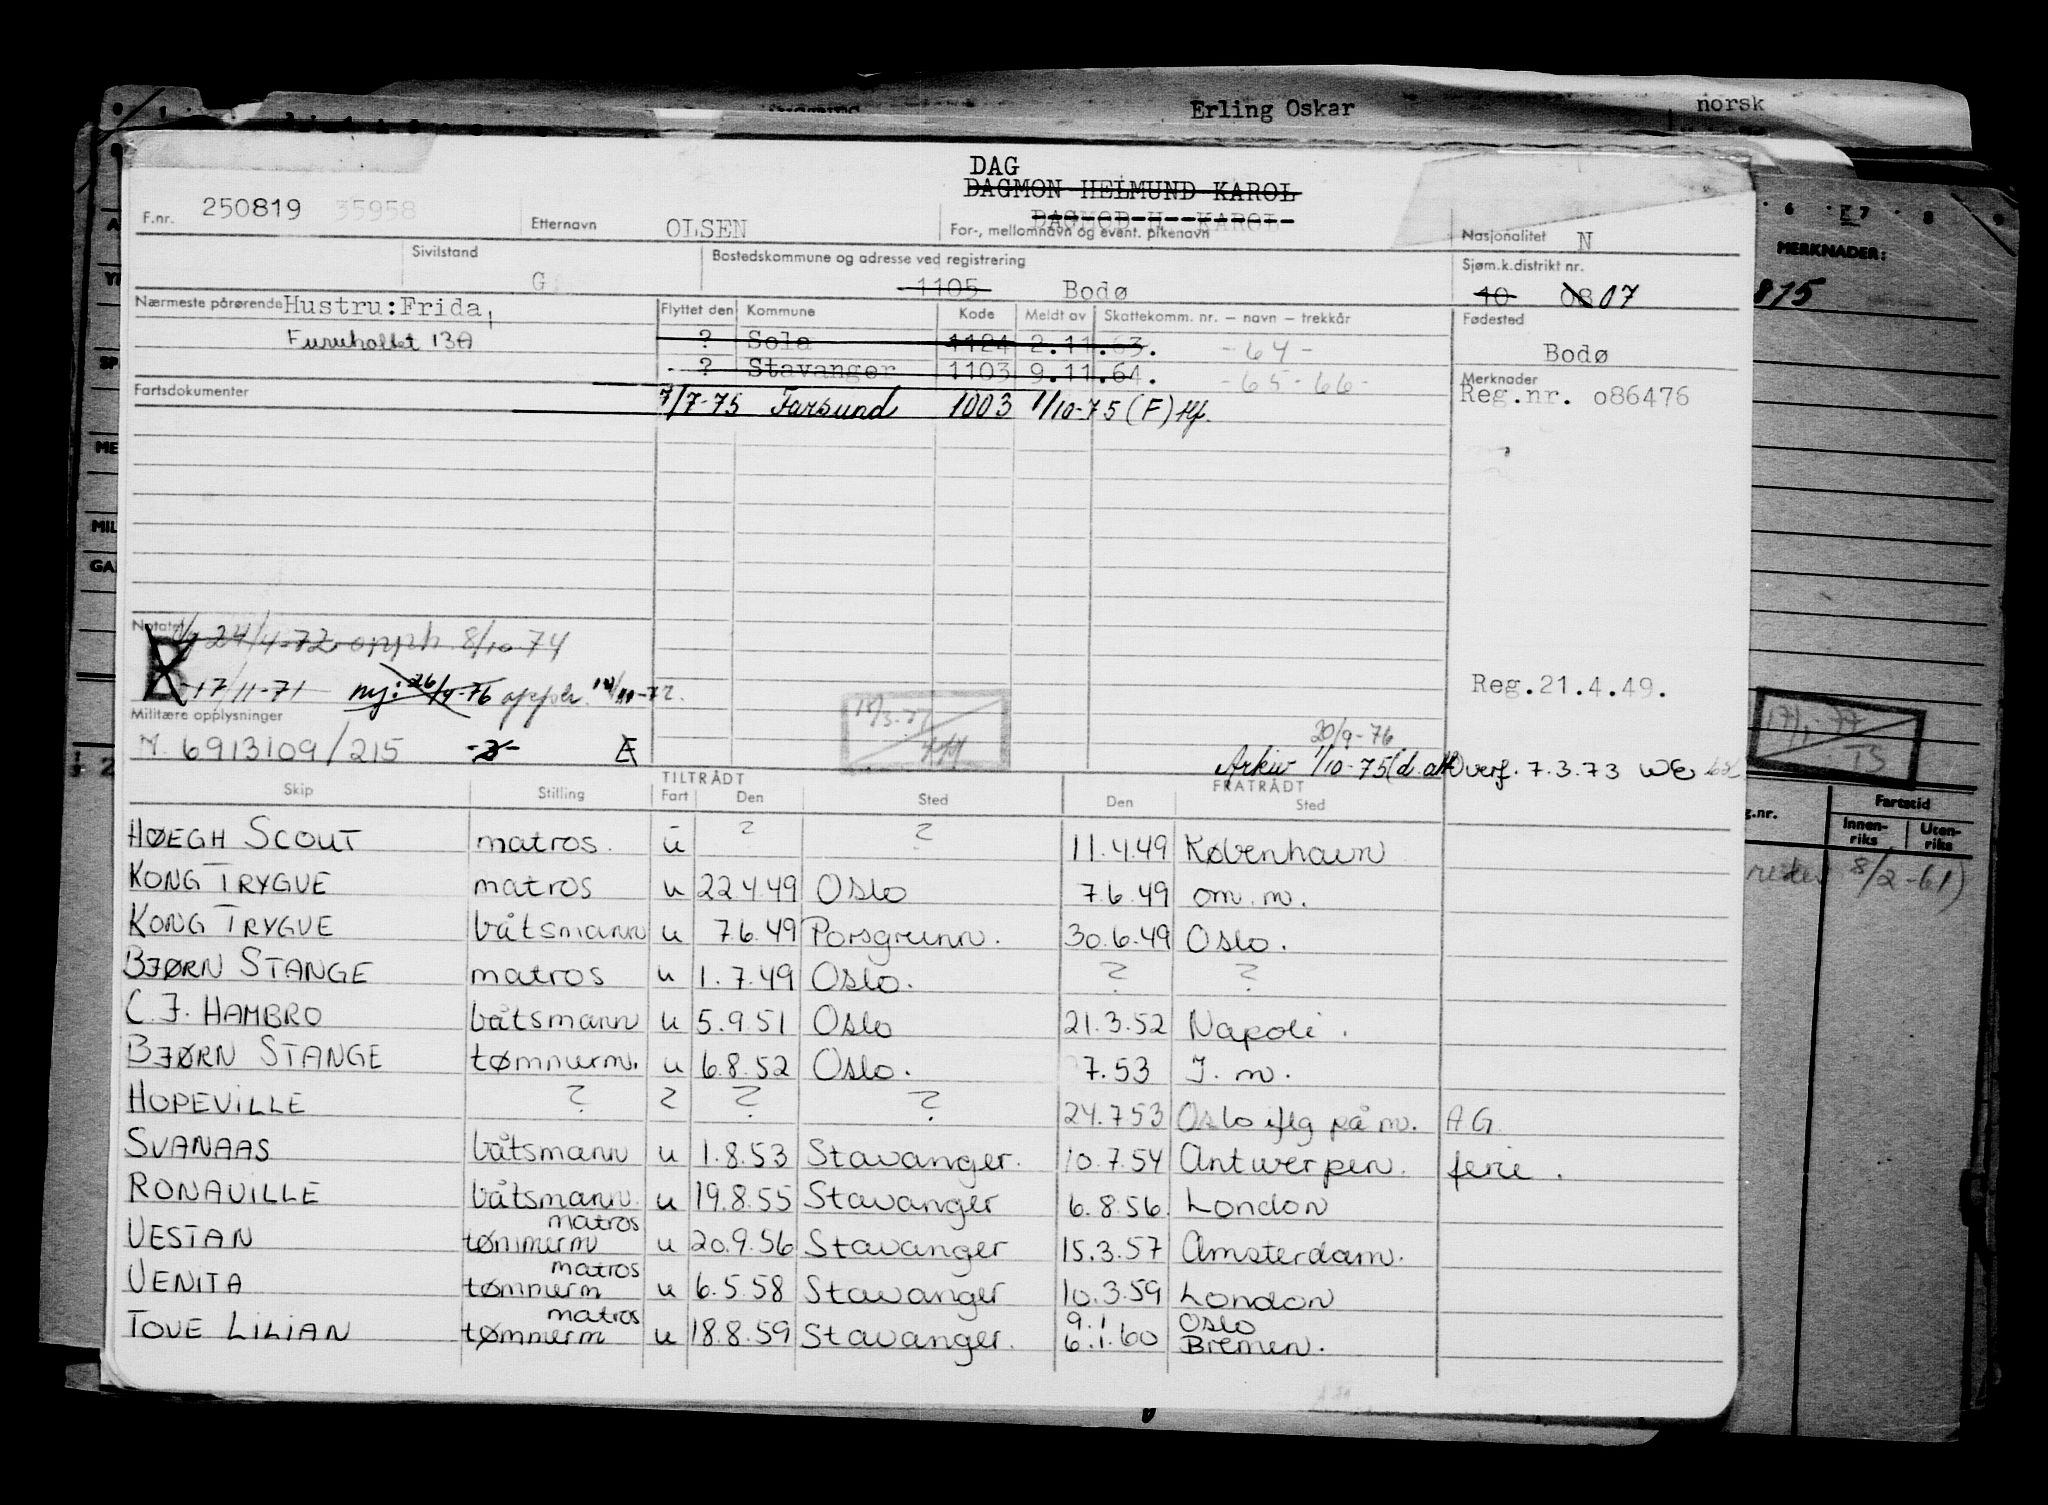 Erling Oskar norsk
DAG
DAGMON HELMUND KAROL
F.nr. 250819 35958 Etternavn OLSEN DAGMOD H. KAROL
For-, mellomnavn og event. pikenavn Nasjonalitet N
MERKNADER:
Sivilstand G Bostedskommune og adresse ved registrering 1105 Bodø Sjøm.k.distrikt nr. 10 08 07
Nærmeste pårørende Hustru: Frida,
Furuhollet 13A
Flyttet den Kommune Kode Meldt av Skattekomm. nr. – navn – trekkår Fødested
? Sola 1124 2.11.63. -64- Bodø
? Stavanger 1103 9.11.64. -65-66- Merknader
Fartsdokumenter Reg.nr. o86476
7/7-75 Farsund 1003 1/10-75 (F)
Notater
24/4-72 opph. 8/10 74
17/11-71 ny: 26/4-76
Reg.21.4.49.
Militære opplysninger
M. 6913109/215
20/9-76
Arkiv 1/10-75 overf. 7.3.73
TILTRÅDT FRATRÅDT
Skip Stilling Fart Den Sted Den Sted
HØEGH SCOUT matros. u ? ? 11.4.49 København
KONG TRYGVE matros u 22.4.49 Oslo 7.6.49 om. m.
KONG TRYGVE båtsmann u 7.6.49 Porsgrunn. 30.6.49 Oslo.
BJØRN STANGE matros u 1.7.49 Oslo. ? ?
C.J. HAMBRO båtsmann u 5.9.51 Oslo 21.3.52 Napoli.
BJØRN STANGE tømmerm. u 6.8.52 Oslo. 7.53 I. m.
HOPEVILLE ? ? ? ? 24.7.53 Oslo iflg på m. AG
SVANAAS båtsmann u 1.8.53 Stavanger. 10.7.54 Antwerpen. ferie.
RONAVILLE båtsmann u 19.8.55 Stavanger 6.8.56 London
VESTAN matros tømmerm u 20.9.56 Stavanger 15.3.57 Amsterdam.
VENITA matros tømmerm u 6.5.58 Stavanger 10.3.59 London
TOVE LILIAN matros tømmerm u 18.8.59 Stavanger. 9.1 Oslo
6.1.60 Bremen.
Fartstid
Innen-riks Uten-riks
8/2-61)